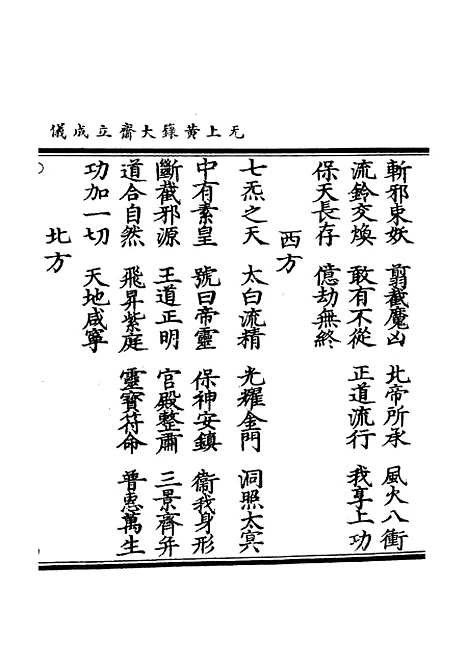 无上黄籙大齋立成儀
斬邪束妖 剪截魔凶 北帝所承 風火八衝
流鈴交煥 敢有不從 正道流行 我享上功
保天長存 億劫無終
西方
七炁之天 太白流精 光耀金門 洞照太冥
中有素皇 號曰帝靈 保神安鎮 衞我身形
斷截邪源 王道正明 官殿整肅 三景齊并
道合自然 飛昇紫庭 靈寳符命 普惠萬生
功加一切 天地咸寧
北方